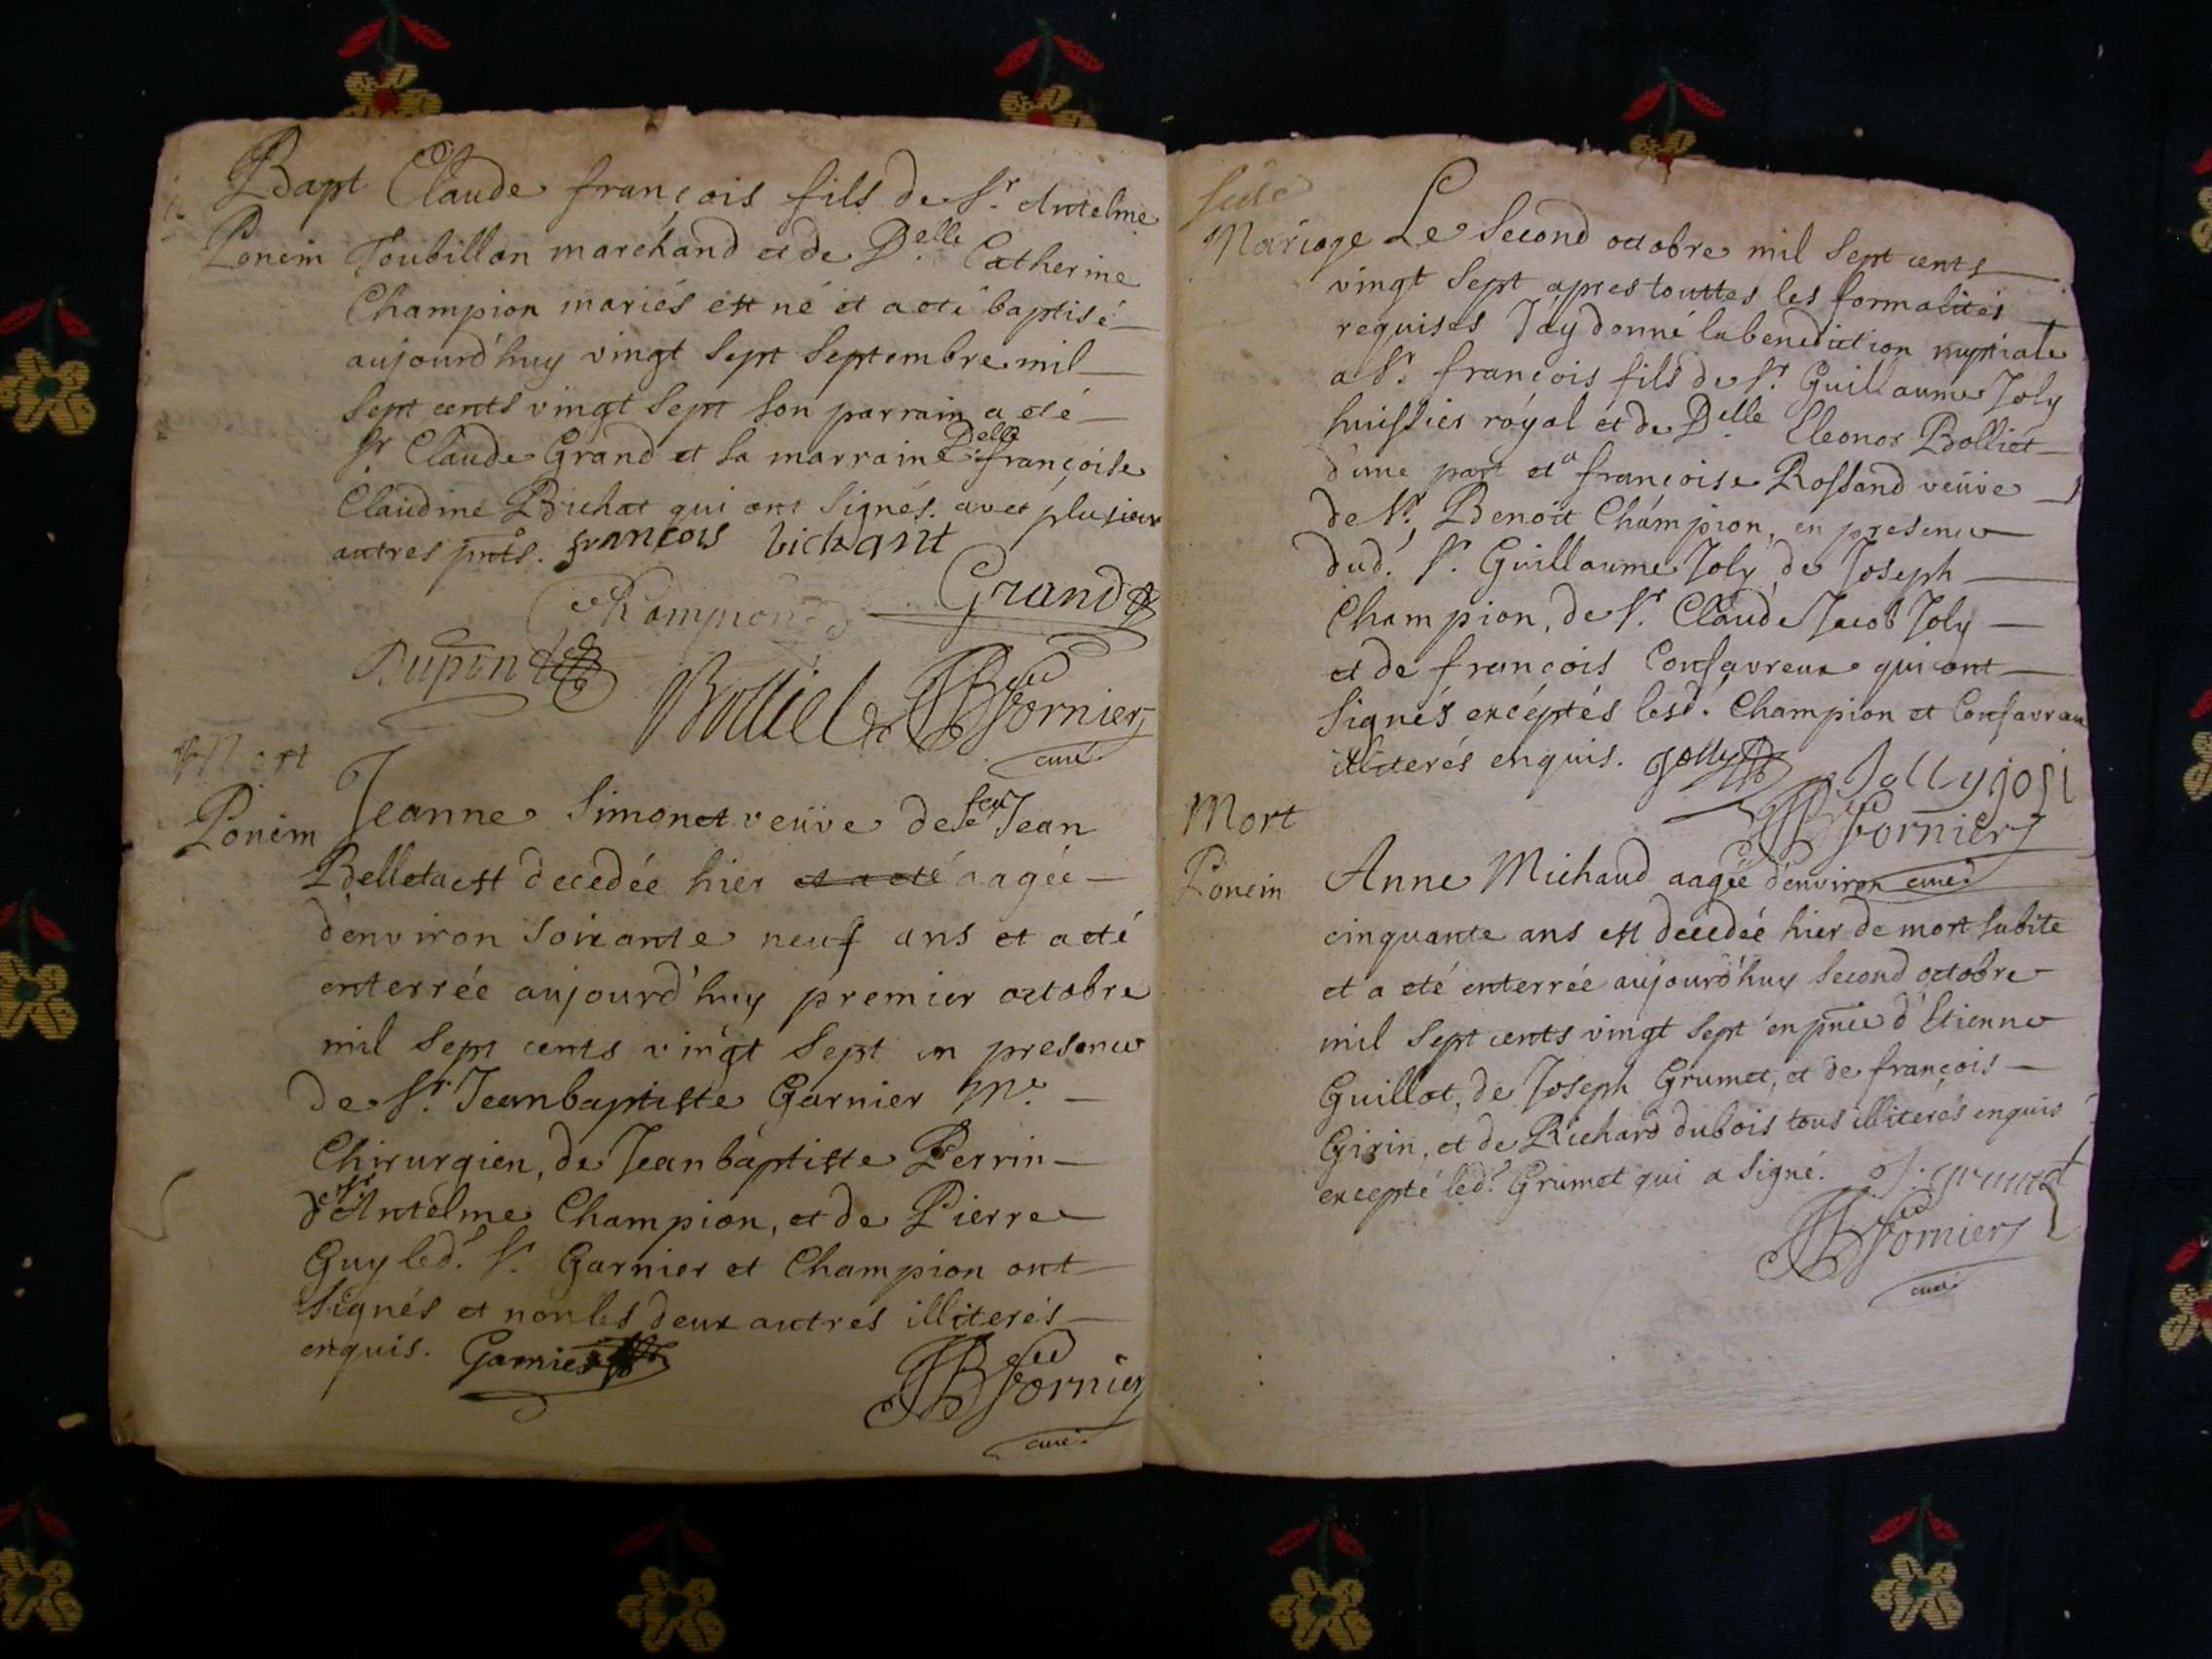 Bapt Claude françois fils de Sr. Antelme
Poncin Toubillon marchand et de Delle. Catherine
Champion mariés est né et a eté baptisé
aujourd'huy vingt sept septembre mil
sept cents vingt sept son parrain a eté
Sr Claude Grand et sa marraine Delle françoise
Claudine Bichat qui ont signés avec plusieur
autres pnts. françois bichant
Champion Grand
Dupont
Bolliet JB Fornier
curé
Mort
Poncin Jeanne Simonet veüve de feu Sr Jean
Belleta est decedée hier et a eté aagée
d'environ soixante neuf ans et a eté
enterrée aujourd'huy premier octobre
mil sept cents vingt sept en presence
de Sr. Jeanbaptiste Garnier Me.
Chirurgien, de Jeanbaptiste Perrin
de Sr Antelme Champion, et de Pierre
Guy led. Sr. Garnier et Champion ont
signés et non les deux autres illiterés
enquis. Garnier JB Fornier
curé
Mariage Le second octobre mil sept cents
vingt sept apres touttes les formalités
requises J'ay donné la benediction nuptiale
a Sr. françois fils de Sr. Guillaume Joly
huissier royal et de Delle Eleonor Bolliet
d'une part et a françoise Rossand veüve
de Sr. Benoit Champion, en presence
dud. Sr. Guillaume Joly, de Joseph
Champion, de Sr. Claude Jacob Joly
et de françois Confavreux qui ont
signés exceptés lesd. Champion et Confavrau
illiterés enquis. Jolly Jolly
JB Fornier
curé
Mort
Poncin Anne Michaud aagée d'environ
cinquante ans est decedée hier de mort subite
et a eté enterrée aujourd'huy second octobre
mil sept cents vingt sept en pnce d'Etienne
Guillot, de Joseph Grumet, et de françois
Girin, et de Richard dubois tous illiterés enquis
excepté led. Grumet qui a signé. J. grumet
JB Fornier
curé